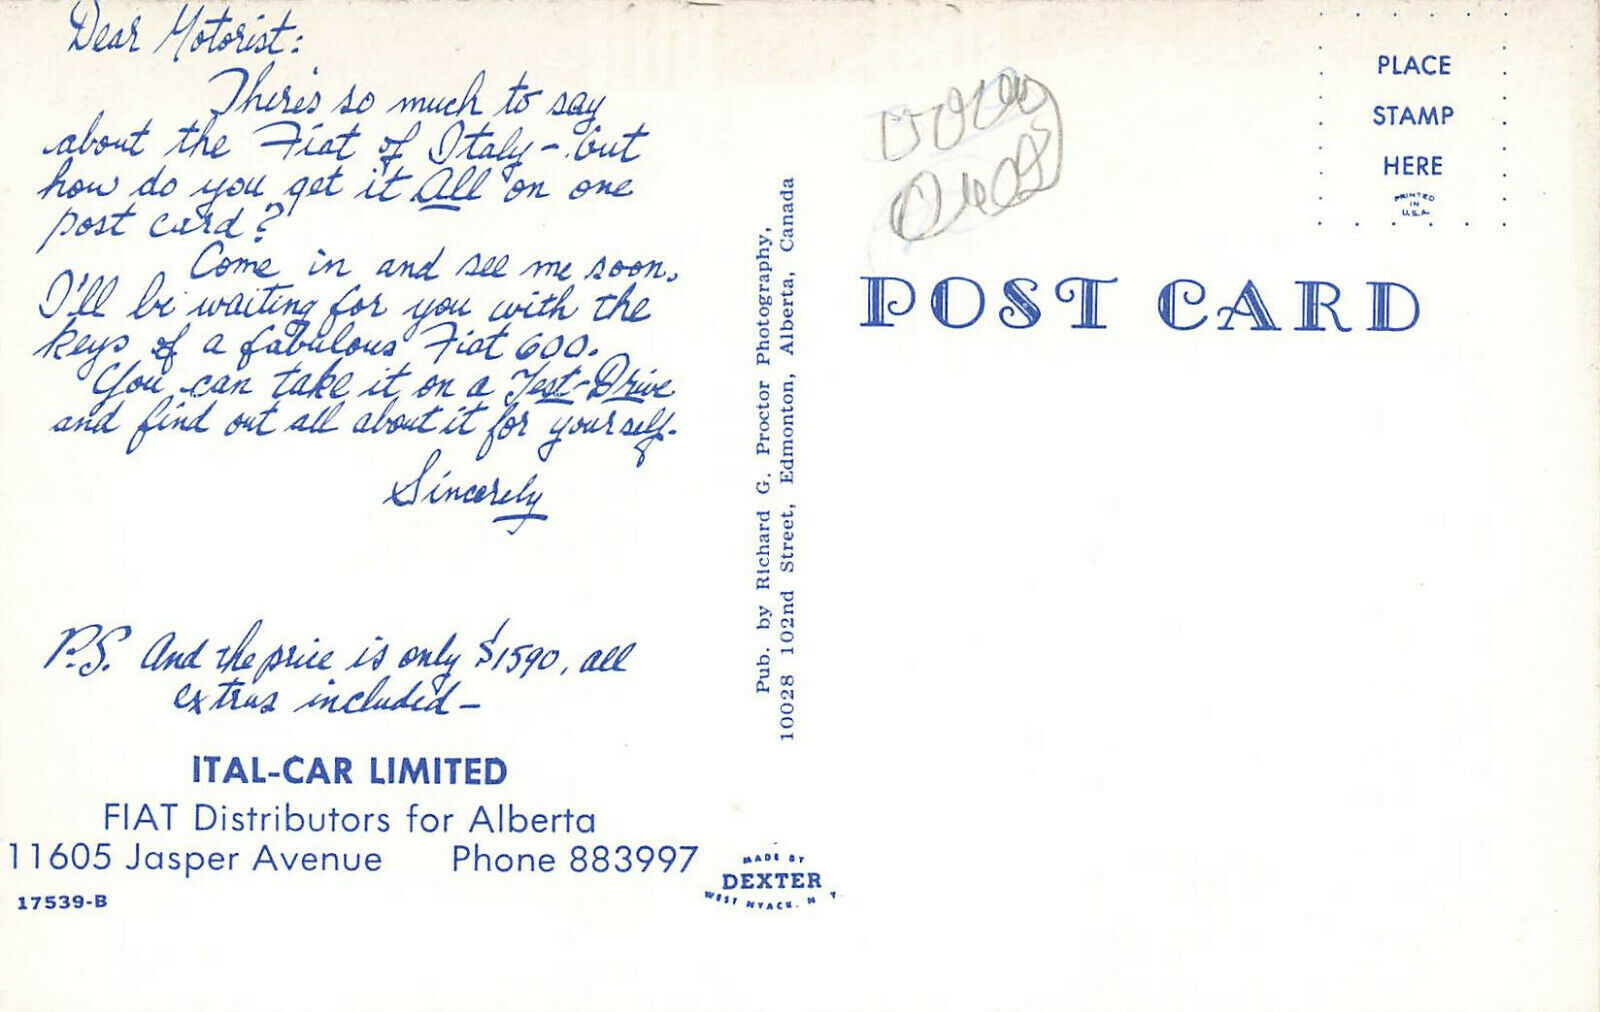 Dear Motorist:
There's so much to say
about the Fiat of Italy - but
how do you get it All on one
post card?
Come in and see me soon.
I'll be waiting for you with the
keys of a fabulous Fiat 600.
You can take it on a Test-Drive
and find out all about it for yourself.
Sincerely
P.S. And the price is only $1590, all
extras included -
ITAL-CAR LIMITED
FIAT Distributors for Alberta
11605 Jasper Avenue Phone 883997
17539-B
MADE BY
DEXTER
WEST NYACK, N. Y.
Pub. by Richard G. Proctor Photography,
10028 102nd Street, Edmonton, Alberta, Canada
POST CARD
PLACE
STAMP
HERE
PRINTED
IN
U.S.A.